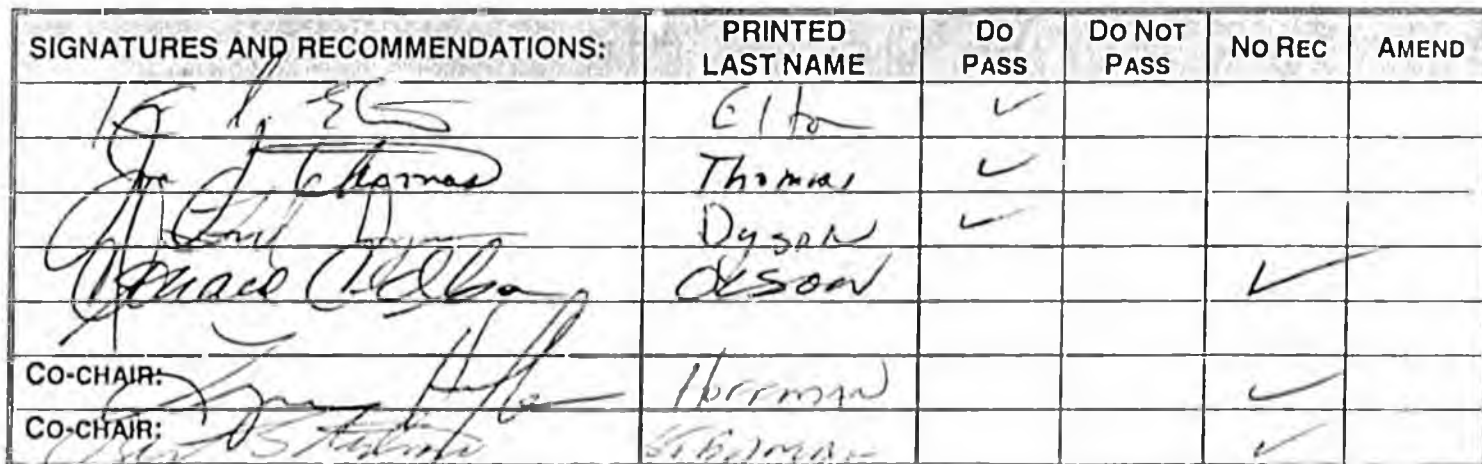 SIGNATURES AND RECOMMENDATIONS: PRINTED LAST NAME DO PASS DO NOT PASS NO REC AMEND
Elton ✓
Thomas Thomas ✓
Dyson ✓
Donald Olson Olson ✓
CO-CHAIR: Hoffman ✓
CO-CHAIR: ✓